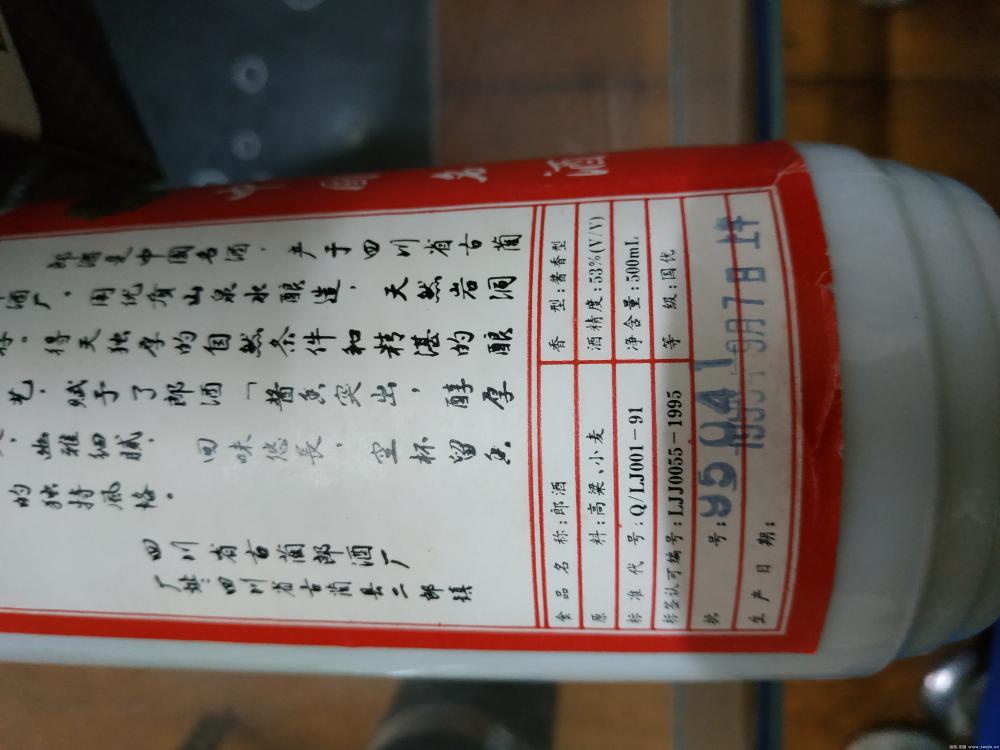 郎酒是中国名酒，产于四川省古蔺
酒厂，用优质山泉水酿造，天然岩洞
得天独厚的自然条件和精湛的酿
艺，赋予了郎酒「酱香突出，醇厚
幽雅细腻，回味悠長，空杯留香
的独特风格。
四川省古蔺郎酒厂
厂址：四川省古蔺县二郎镇
食品名称：郎酒
香型：酱香型
原料：高粱、小麦
酒精度：53%(V/V)
标准代号：Q/LJ001-91
净含量：500mL
标签认可编号：LJJ0055-1995
等级：国优
批号：95041
生产日期：
9月7日
酒